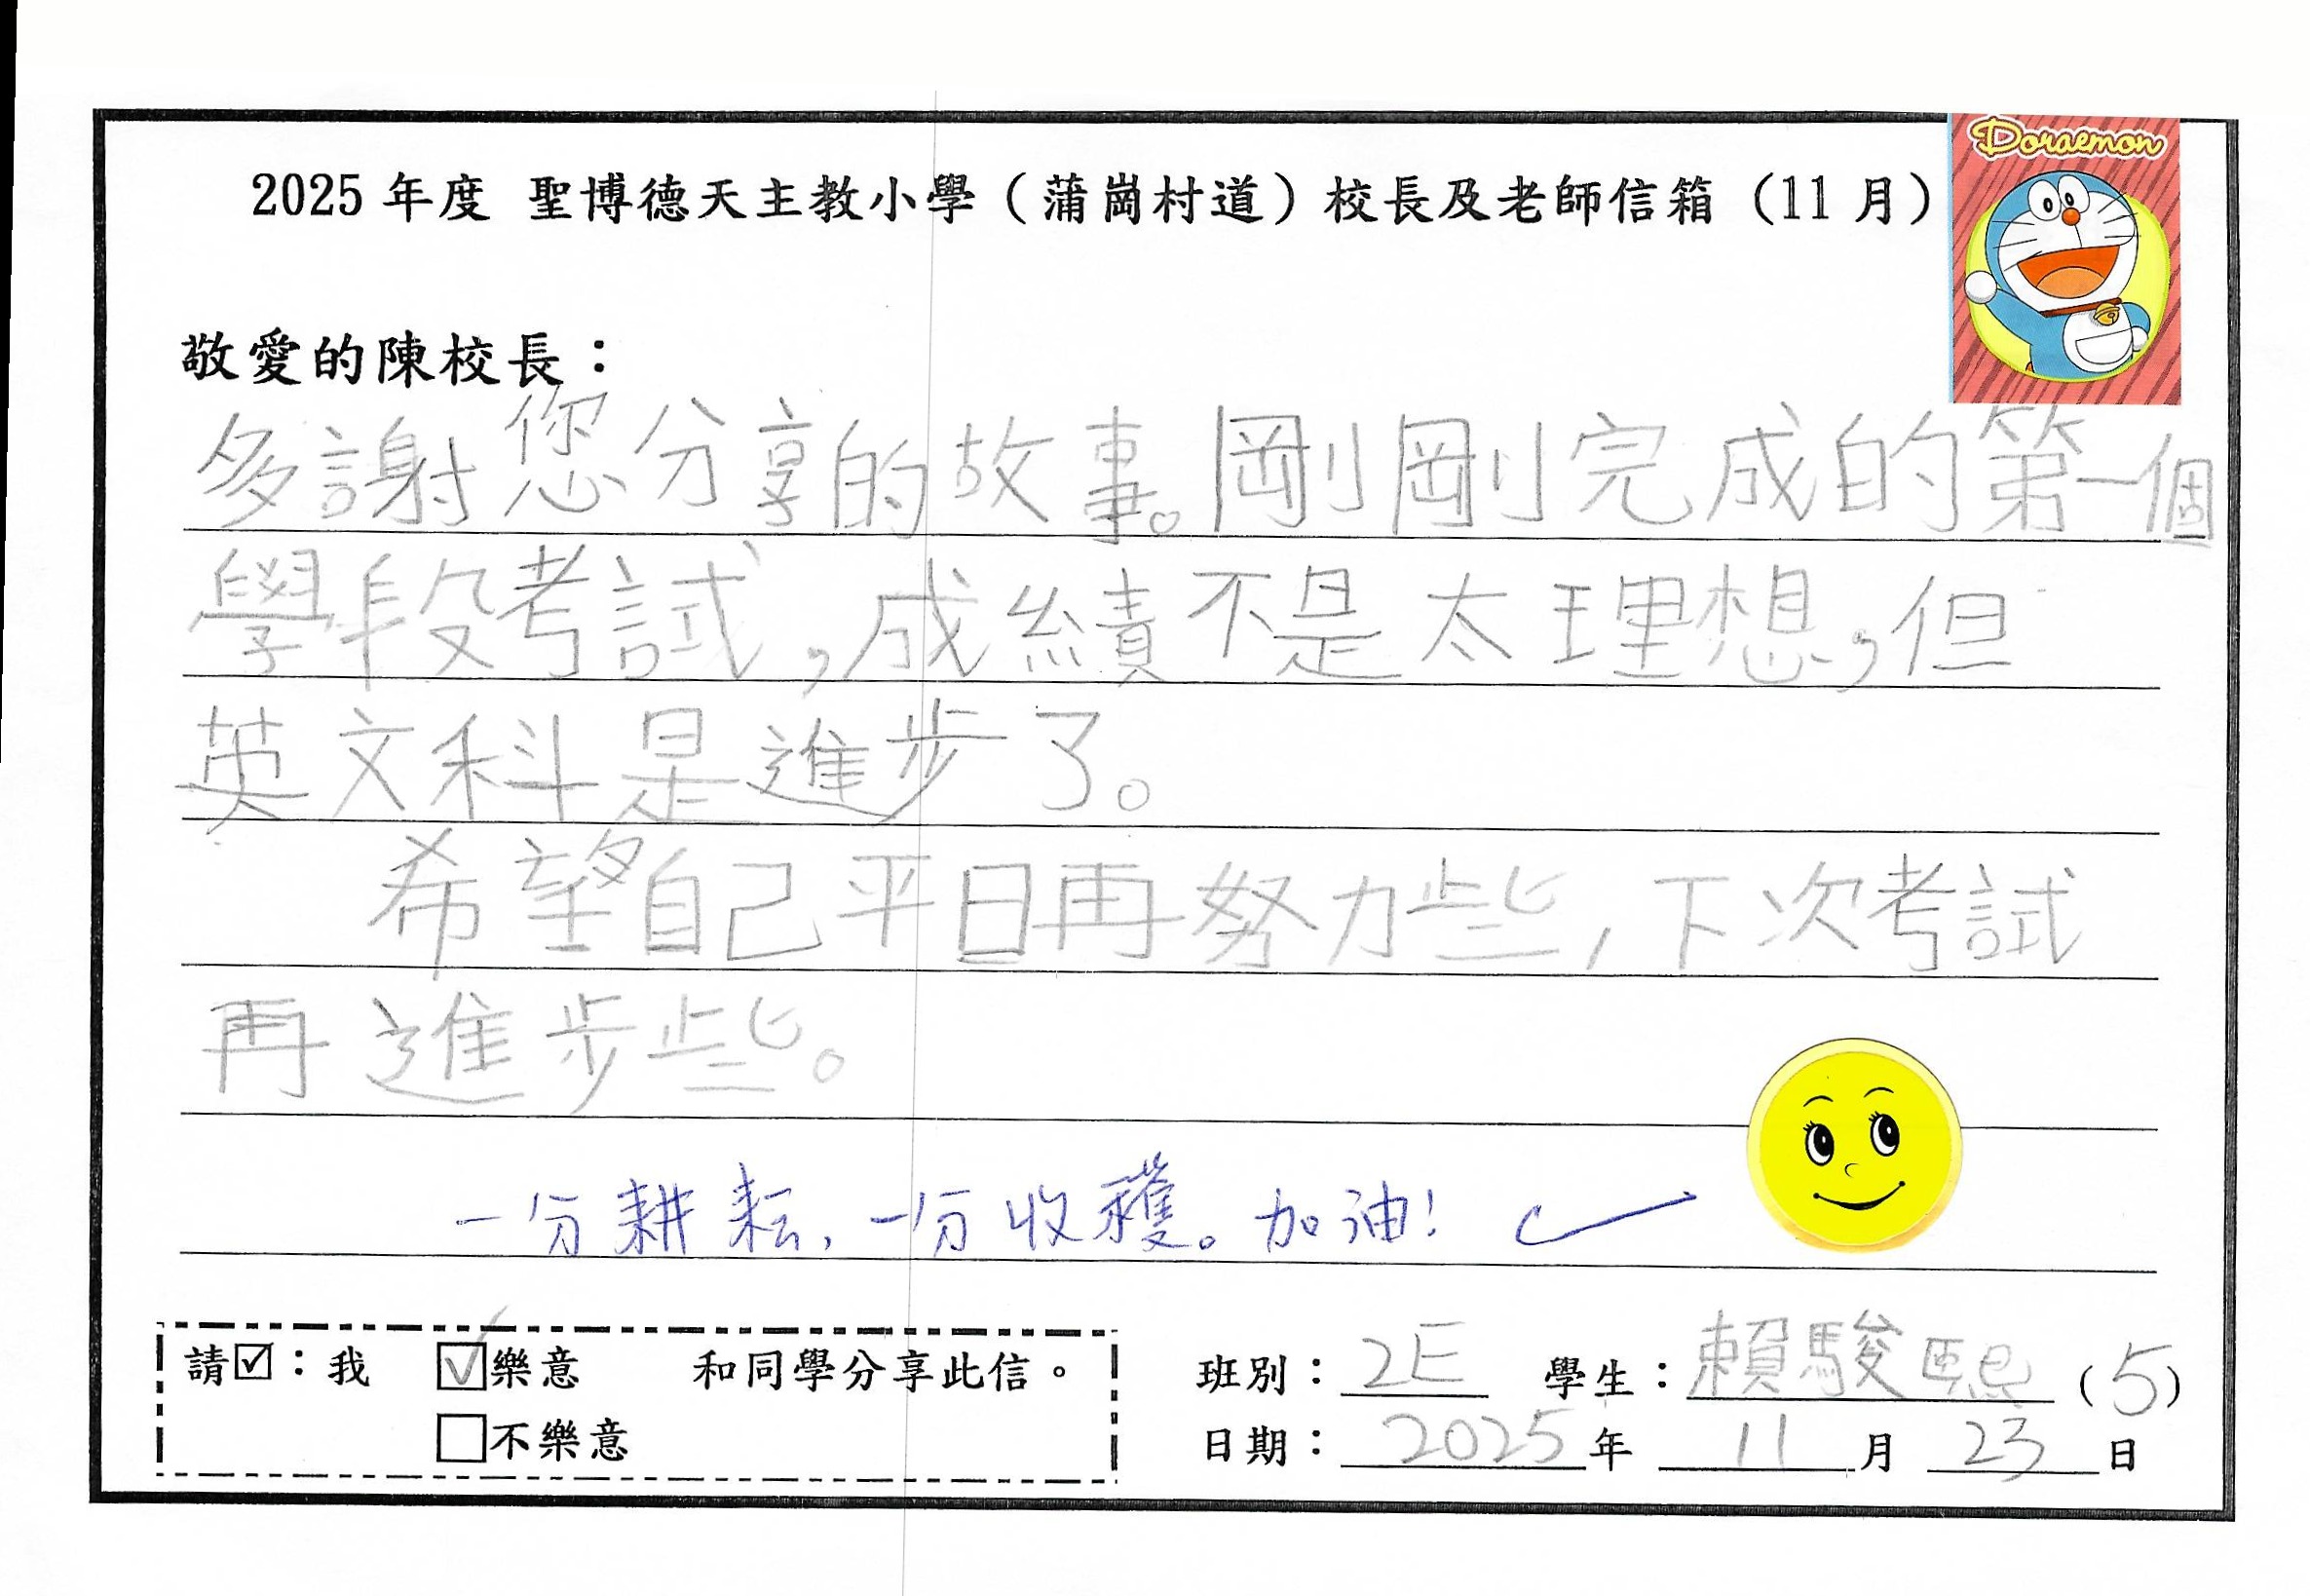 2025 年度 聖博德天主教小學（蒲崗村道）校長及老師信箱（11 月）
Doraemon
敬愛的陳校長：
多謝您分享的故事。剛剛完成的第一個
學段考試，成績不是太理想，但
英文科是進步了。
希望自己平日再努力些，下次考試
再進步些。
一分耕耘，一分收穫。加油！
請☑：我 ☑樂意 和同學分享此信。
□不樂意
班別：2E 學生：賴駿熙（5）
日期：2025年 11月 23日